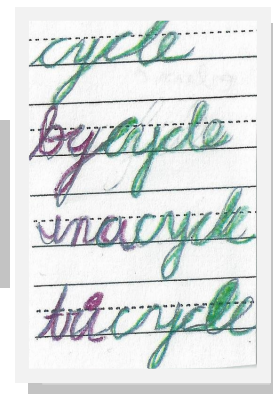 cycle
bycycle
unacycle
tricycle